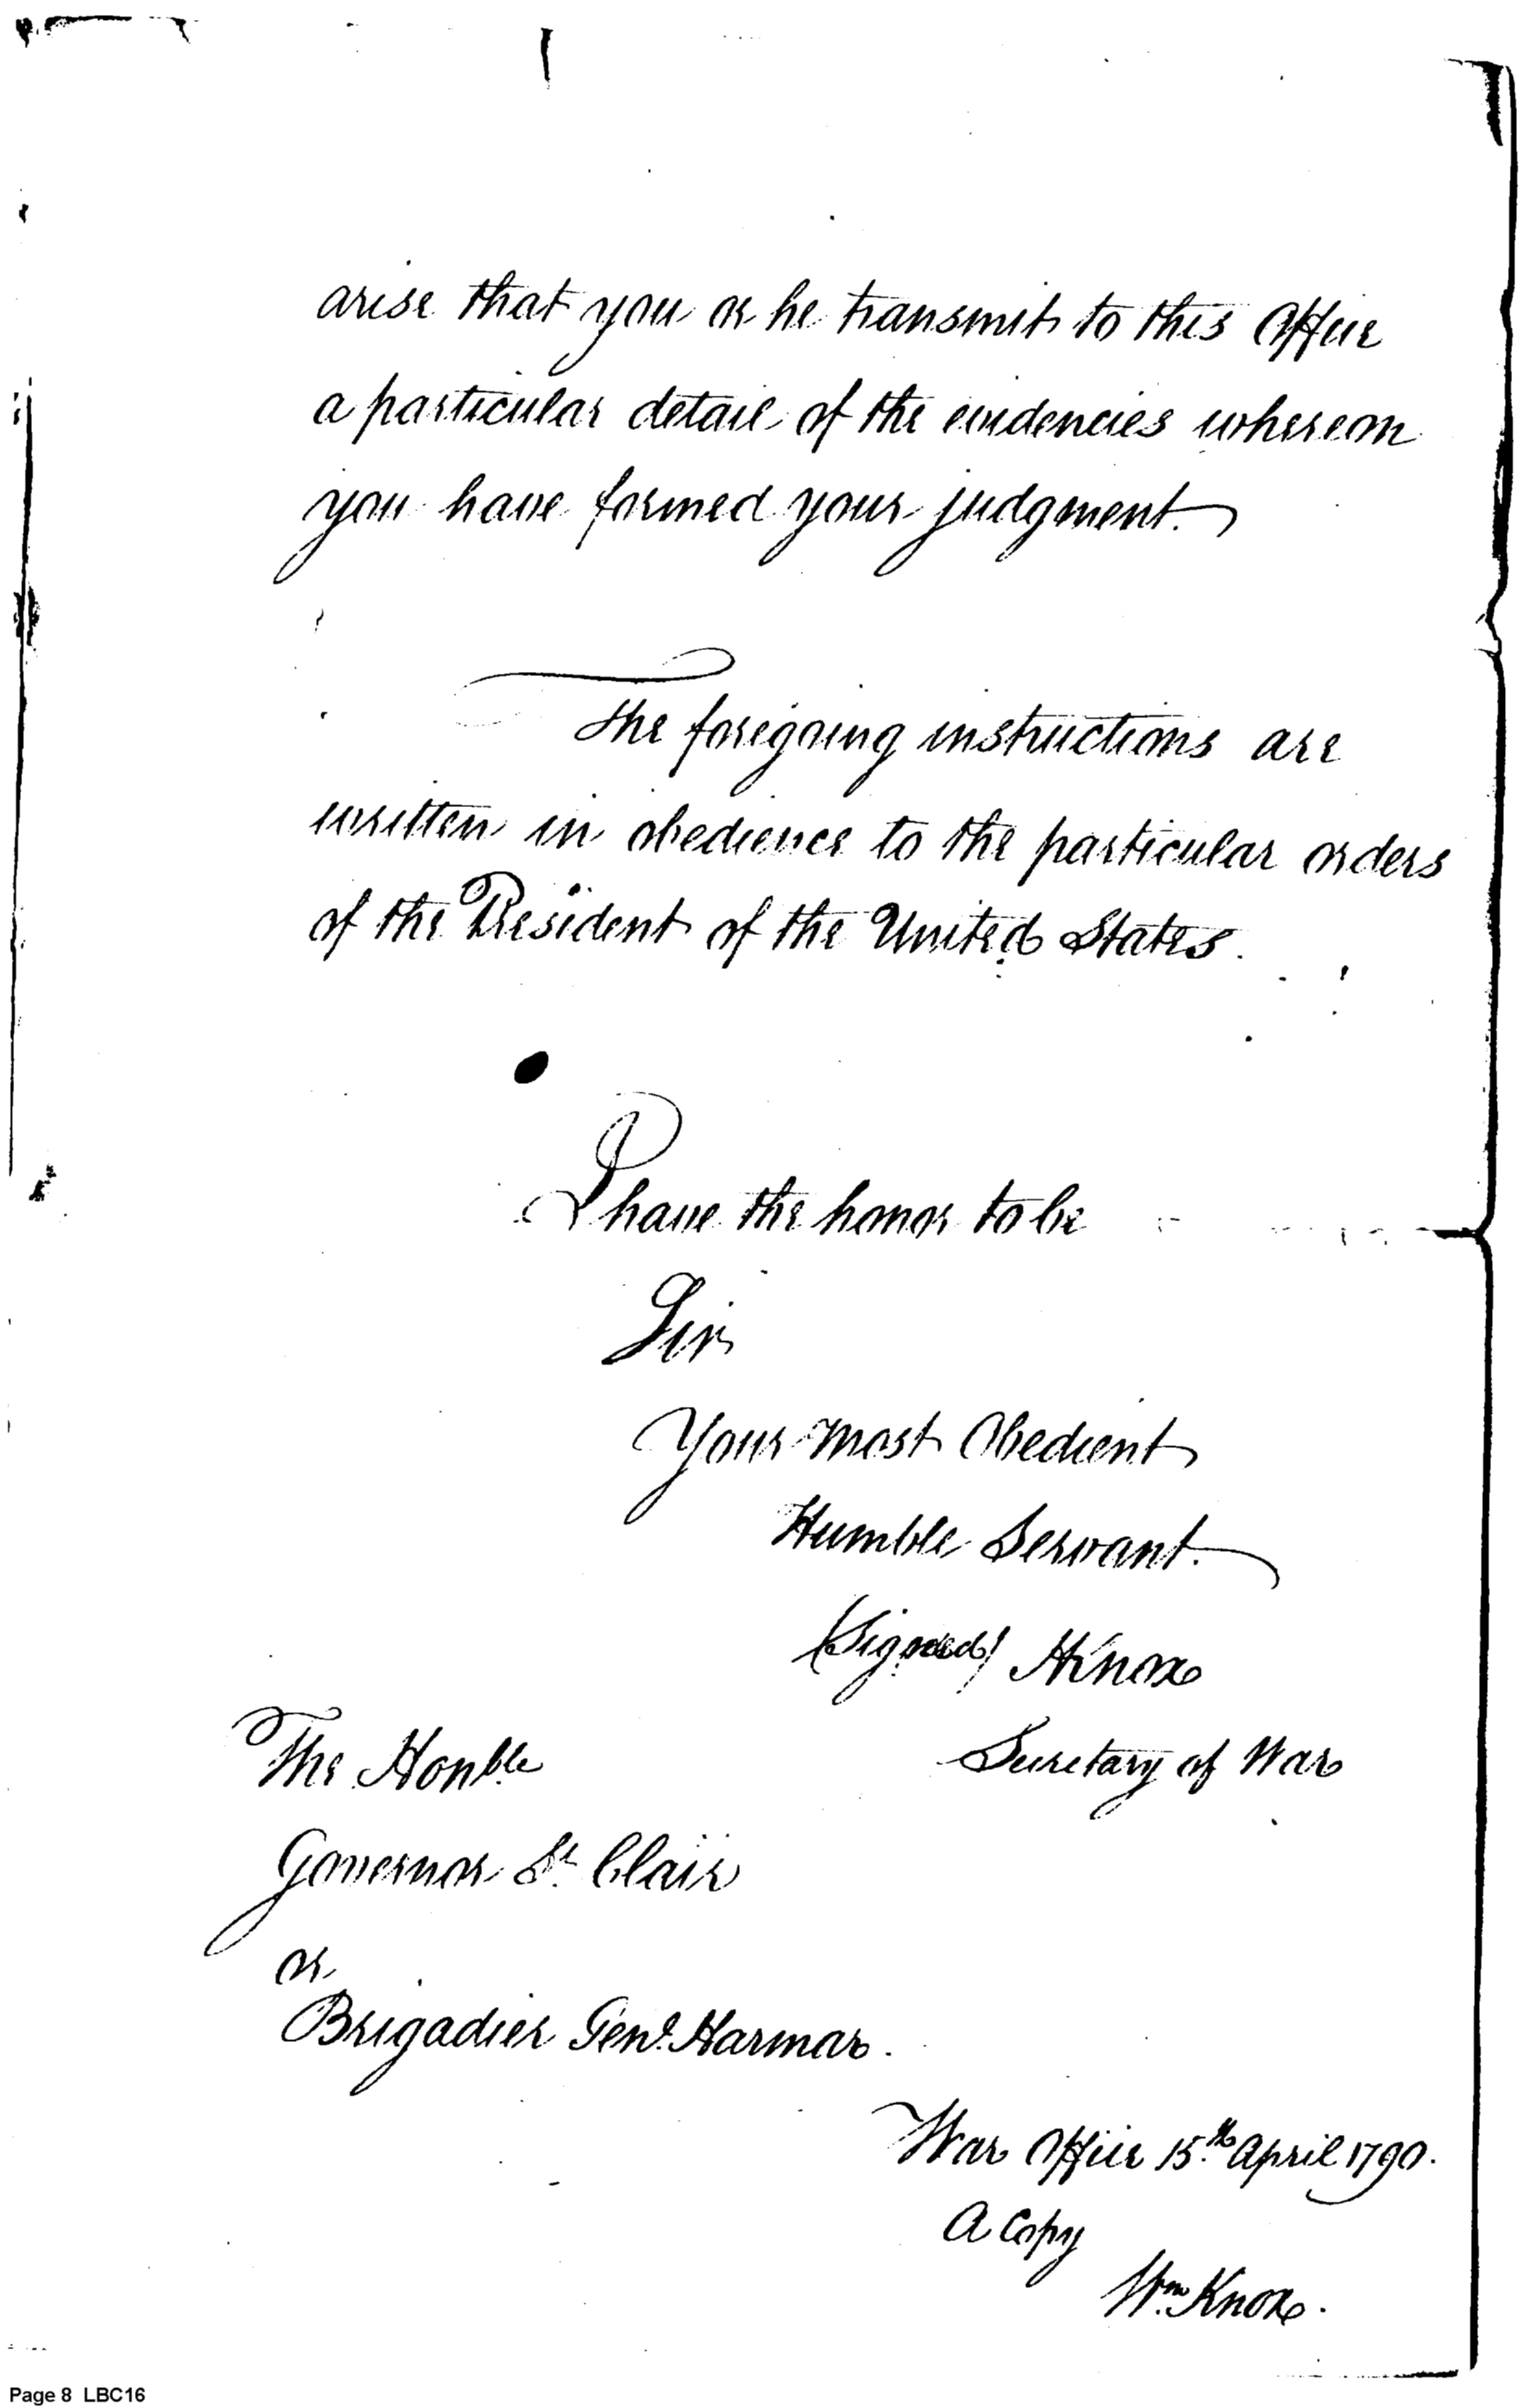 arise that you or he transmit to this Office
a particular detail of the evidencies whereon
you have formed your judgment.
The foregoing instructions are
written in obedience to the particular orders
of the President of the United States.
I have the honor to be
Sir
Your Most Obedient
Humble Servant.
(Signed) HKnox
Secretary of War
The Honble
Governor St. Clair
or
Brigadier Genl. Harmar.
War Office 15.th April 1790.
A Copy
Wm. Knox.
Page 8 LBC16